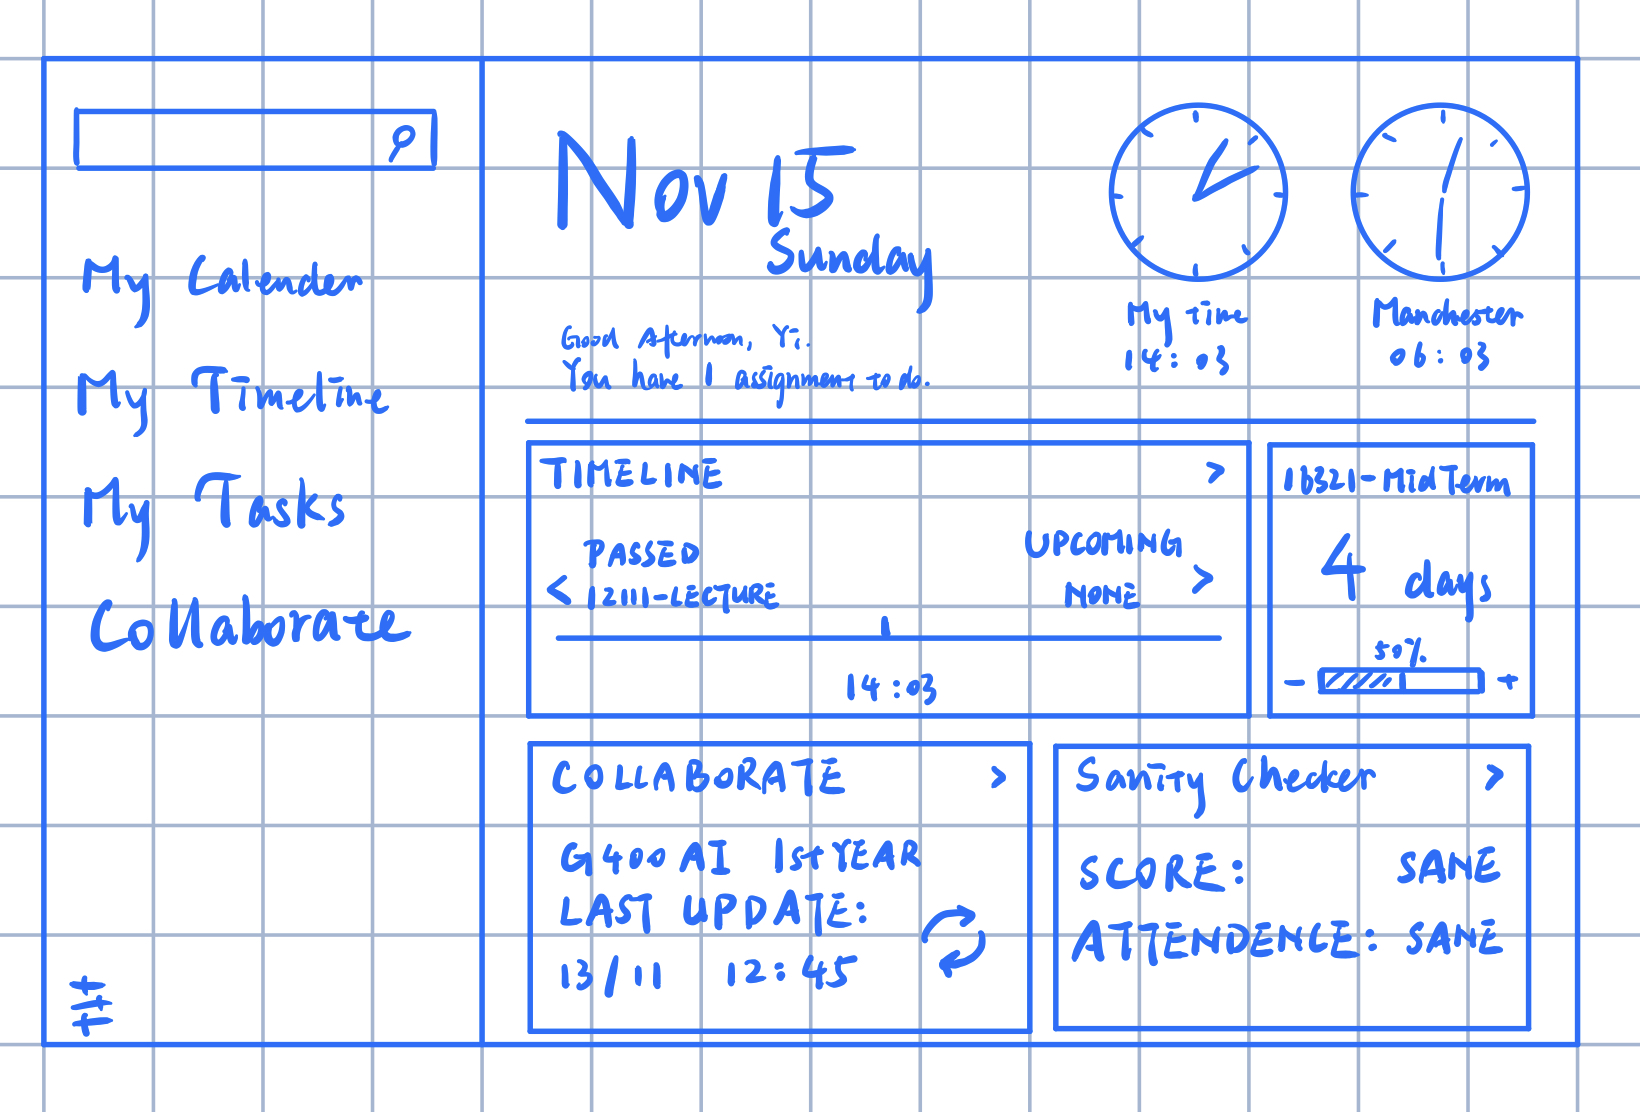 My Calender
My Timeline
My Tasks
Collaborate
Nov 15
Sunday
Good Afternoon, Yi.
You have 1 assignment to do.
My time
14:03
Manchester
06:03
TIMELINE >
PASSED
< 12111-LECTURE
UPCOMING
NONE >
14:03
16321-MidTerm
4 days
50%
- +
COLLABORATE >
G400 AI 1st YEAR
LAST UPDATE:
13/11 12:45
Sanity Checker >
SCORE: SANE
ATTENDENCE: SANE